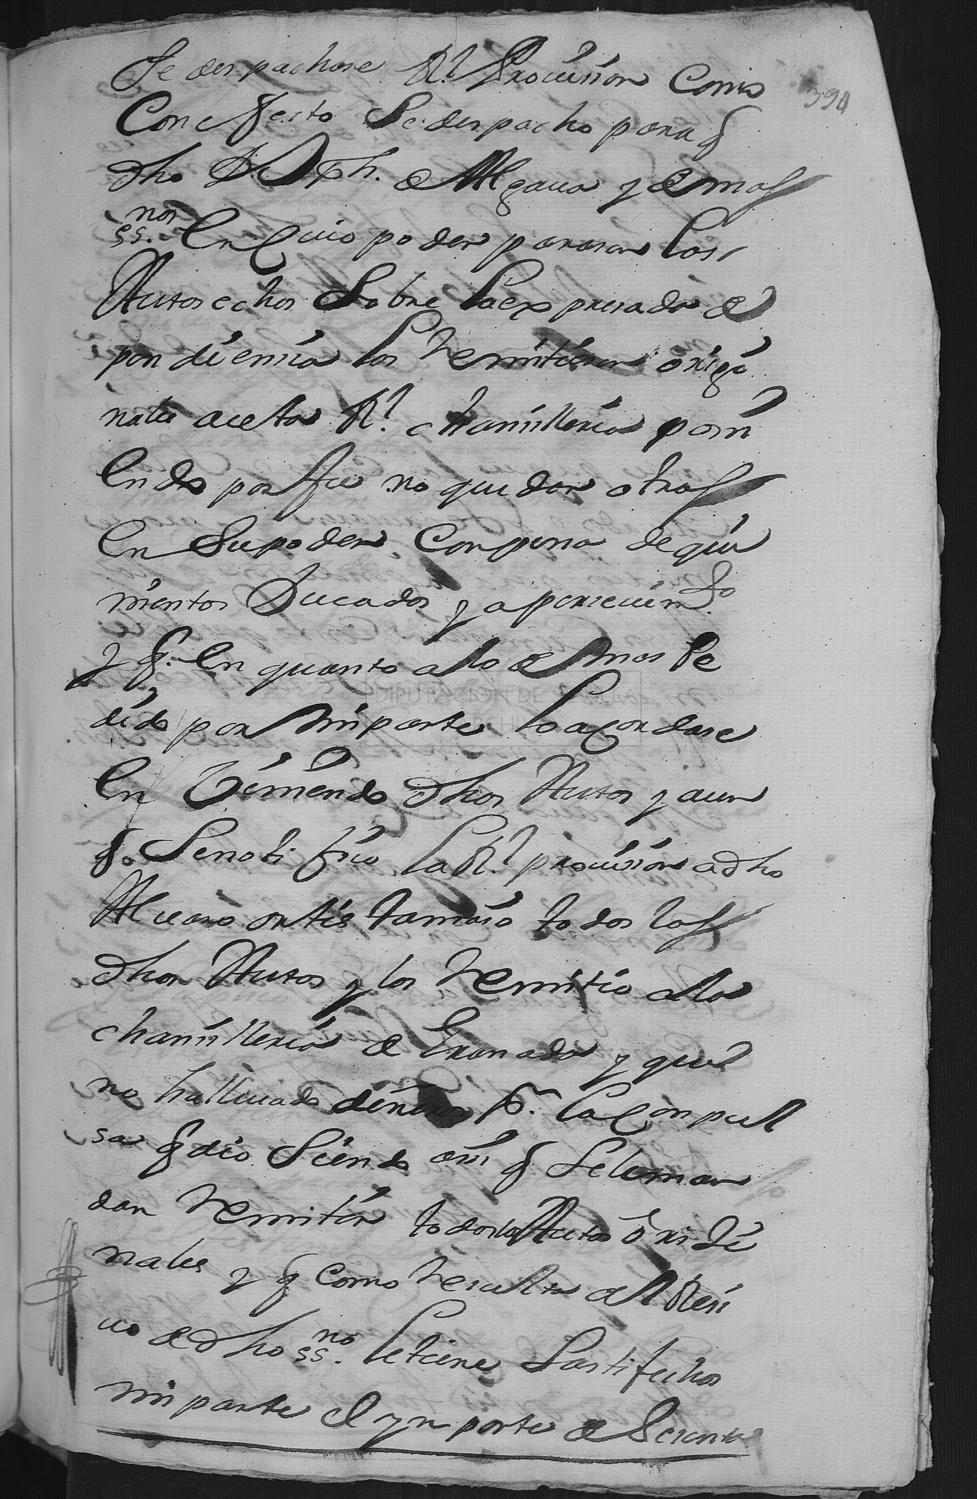 394
Se despachase Rl Provision Como
Con efecto Se despacho para q
dho Dn Jph. de Algava y demas
ssnos En Cuio poder parasen los
Autos echos Sobre la expresada de
pendiencia los remitiesen origi
nales a esta Rl chansilleria poni
endo por fee no quedar otros
En Su poder Con pena de qui
nientos Ducados y apersevimto
y q. En quanto a lo demas Pe
dido por mi parte Se acordase
En Viniendo dhos Autos y aun
q. Se notifico la Rl provision a dho
Alvaro ortis tamaio todos los
dhos Autos y los remitio a la
chansilleria de Granada y que
no hallevado dineros pa. la Conpul
sa q dio Siendo asi q Se le man
dan remitir todos los Autos orixi
nales y q Como resulta del Resi
vo de dho ssno. le tiene Sastifechos
mi parte el ynporte de Sesenta